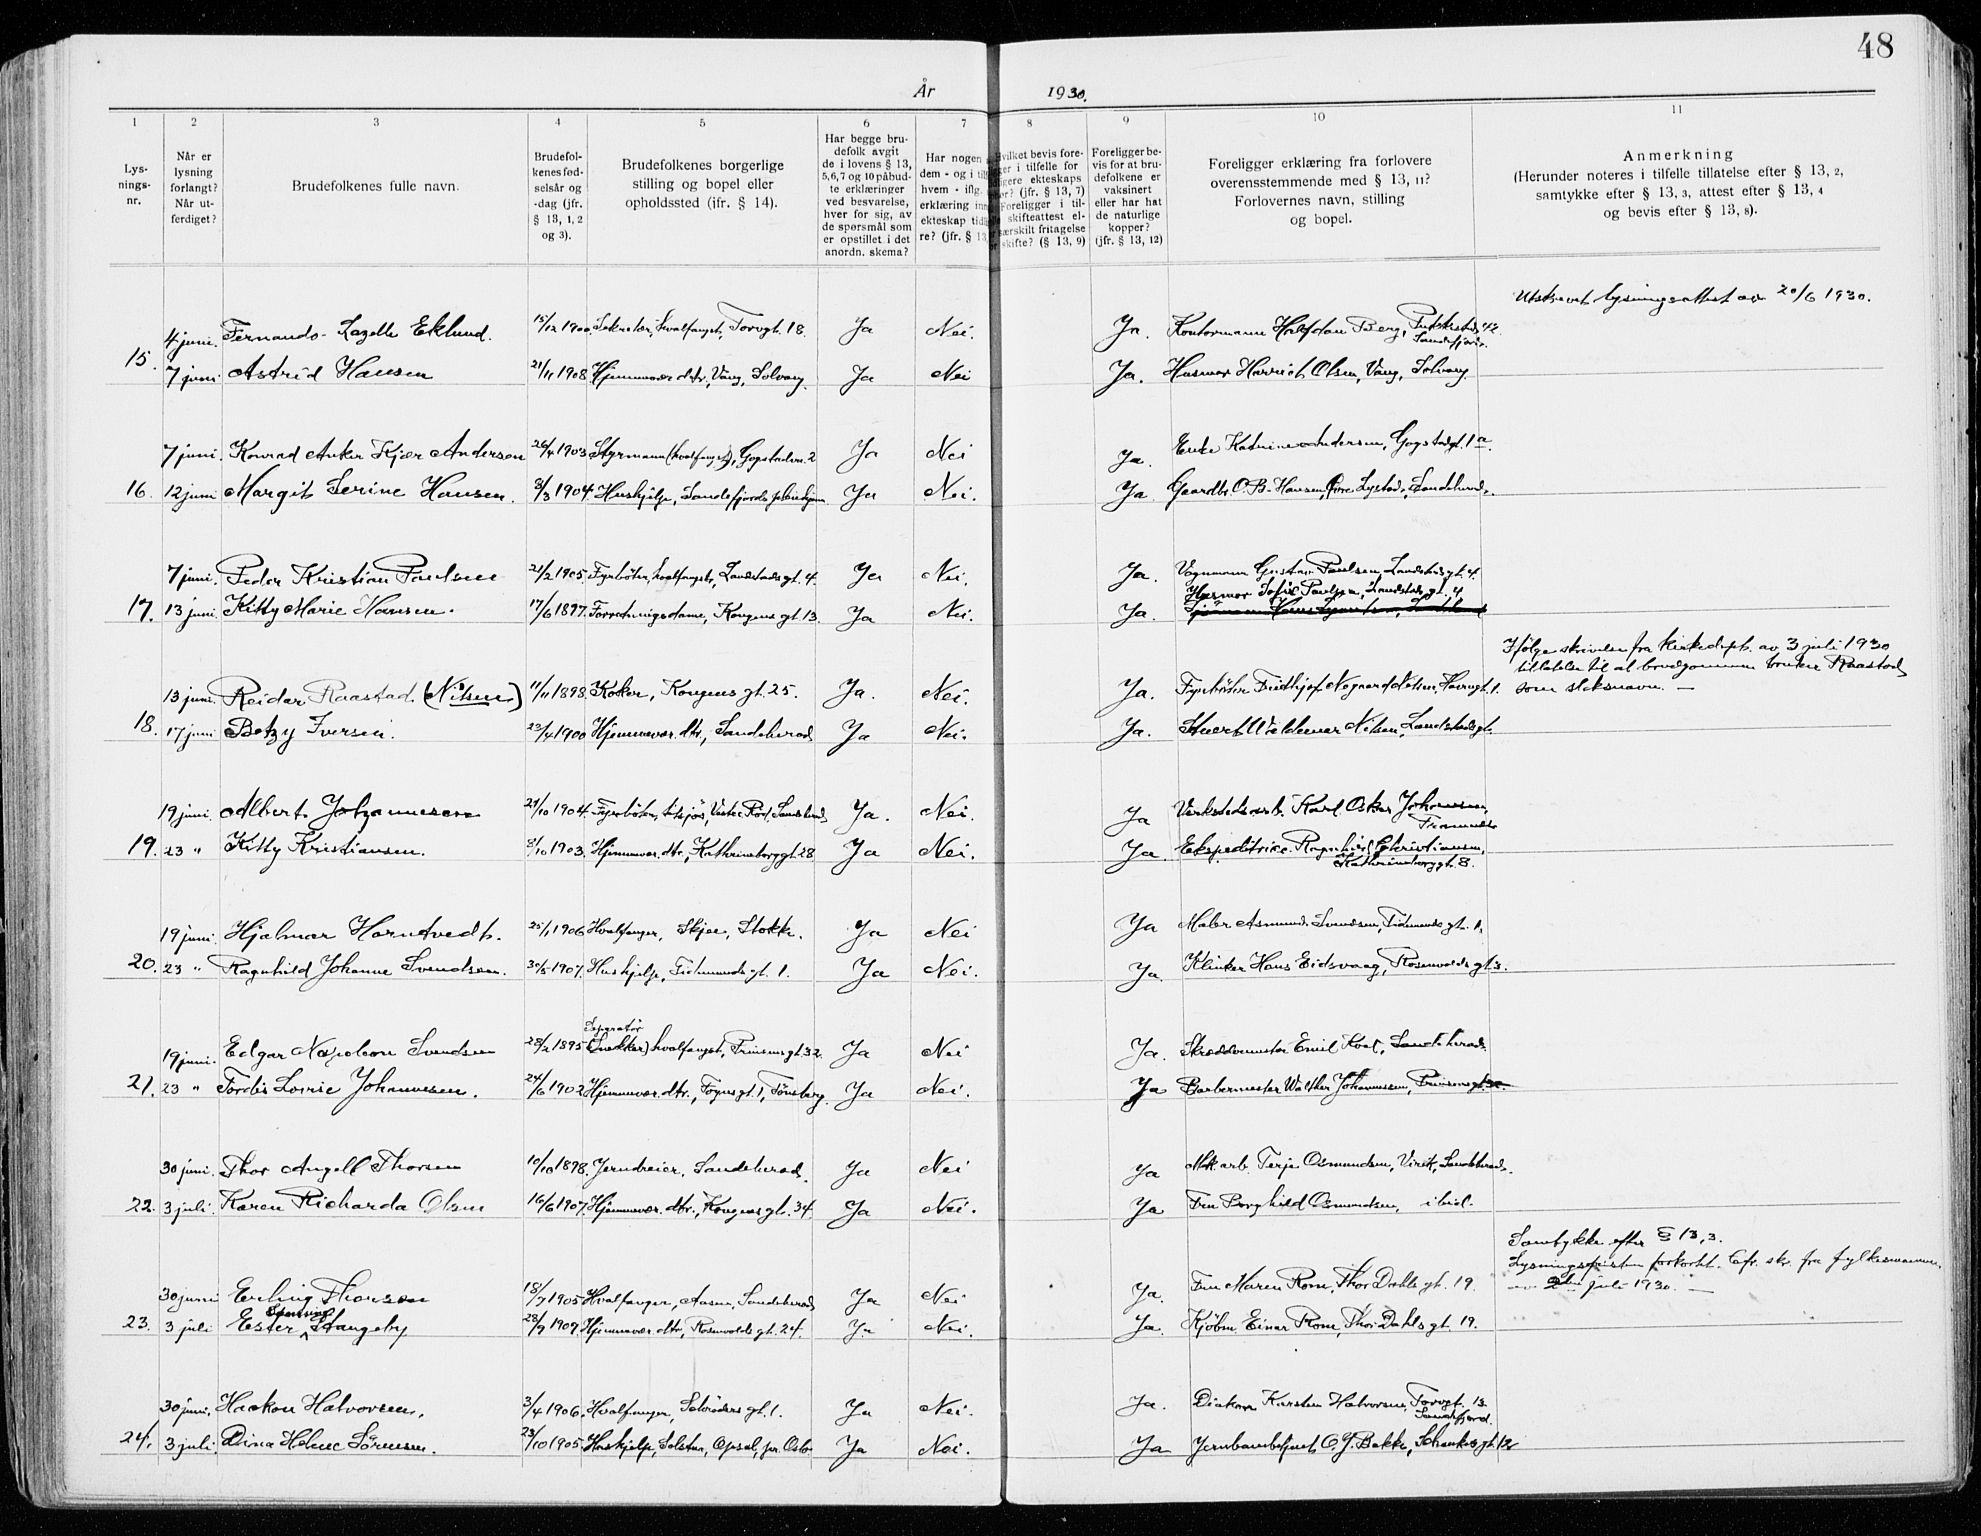 48
År 1930.
1 2 3 4 5 6 7 8 9 10 11
Lysnings-nr.
Når er lysning forlangt? Når utferdiget?
Brudefolkenes fulle navn.
Brudefolkenes fødselsår og -dag (jfr. § 13, 1, 2 og 3).
Brudefolkenes borgerlige stilling og bopel eller opholdssted (jfr. § 14).
Har begge brudefolk avgit de i lovens § 13, 5,6,7 og 10 påbudte erklæringer ved besvarelse, hver for sig, av de spørsmål som er opstillet i det anordn. skema?
Har nogen dem - og i hvem - iflg. erklæring ekteskap re? (jfr. § 13,
bevis fore- i tilfelle for ekteskaps (jfr. § 13, 7) Foreligger i til- skifteattest el- særskilt fritagelse skifte? (§ 13, 9)
Foreligger bevis for at brudefolkene er vaksinert eller har hat de naturlige kopper? (jfr. § 13, 12)
Foreligger erklæring fra forlovere overensstemmende med § 13, 11? Forlovernes navn, stilling og bopel.
Anmerkning (Herunder noteres i tilfelle tillatelse efter § 13, 2, samtykke efter § 13, 3, attest efter § 13, 4 og bevis efter § 13, 8).
Utskrevet lysningsattest av 20/6 1930.
4 juni. Fernando Eklund. 15/12 1900. Sekretær, hvalfangst, Torvgt. 18. Ja Nei. Ja. Kontormann Halfdan Berg, Sandefjord.
15. 7 juni Astrid Hansen 21/11 1908 Hjemmevær. dtr, Vang, Solvang. Ja Nei Ja. Husmor Olsen, Vang, Solvang.
7 juni. Konrad Anker Kjær Andersen 26/4 1903 Styrmann (hvalfangst), Gogstadvn. 2 Ja Nei Ja. Enke Katrine Andersen, Gogstadgt. 1 a.
16. 12 juni Margit Serine Hansen. 8/3 1904. Hushjelp, Sandefjords Ja Nei. Ja Gaardbr. O. B. Hansen, Lystad, Sandeherad.
7 juni. Peder Kristian Paulsen 21/2 1905. Fyrbøter, hvalfangst, Landstads gt. 4. Ja Nei. Ja. Vognmann Gustav Paulsen, Landstadsgt. 4.
Husmor Sofie Paulsen, Landstads gt. 4
17. 13 juni. Kitty Marie Hansen. 17/6 1897. Forretningsdame, Kongens gt. 13. Ja Nei. Ja.
Ifølge skrivelse fra Kirkedept. av 3 juli 1930
tillatelse til at brudgommen bruker Raastad
som slektsnavn. —
13 juni. Reidar Raastad (Nilsen) 11/11 1898. Koker, Kongens gt. 25. Ja. Nei. Ja. Fyrbøter Fridthjof Nilsen, gt. 1.
18. 17 juni Betzy Iversen. 22/4 1900 Hjemmevær. dtr., Sandeherad Ja Nei. Ja. Stuert Valdemar Nilsen, Landstadsgt.
19 juni. Albert Johannesen 29/10 1904. Fyrbøter, Sandeherad Ja. Nei. Ja Verkstedsarb. Karl Oskar Johannesen, Framnæs
19. 23 " Kitty Kristiansen. 8/10 1903. Hjemmevær. dtr., Kathrineborggt. 28 Ja Nei. Ja. Ekspeditrice Ragnhild Christiansen, Kathrineborggt. 8.
19 juni. Hjalmar Horntvedt. 25/1 1906 Hvalfanger, Skjee, Stokke. Ja Nei Ja Maler Asmund Svendsen, Tidemands gt. 1.
20. 23 " Ragnhild Johanne Svendsen. 30/5 1907. Hushjelp, Tidemands gt. 1. Ja Nei. Ja. Klinker Hans Eidsvaag, Rosenvolds gt.
Separatør
19 juni. Edgar Napoleon Svendsen 28/2 1895 (Snekker) hvalfangst, Prinsens gt. 32. Ja Nei Ja. Skreddermester Emil Sandeherad.
21. 23 " Tordis Johannessen. 24/6 1902 Hjemmevær. dtr., gt. 1, Tønsberg. Ja Nei. Ja Barbermester Walther Johannessen, Prinsensgt.
30 juni. Thor Angell Thorsen 10/10 1898. Jerndreier, Sandeherad. Ja Nei Ja Mek. arb. Terje Osmundsen, Virik, Sandeherad.
22. 3 juli. Karen Richarda Olsen 16/6 1907. Hjemmevær. dtr., Kongens gt. 34. Ja Nei. Ja Fru Borghild Osmundsen, ibid.
Samtykke efter § 13, 3.
Lysningsfristen forkortet. Cfr. skr. fra fylkesmannen
av juli 1930. —
30 juni Erling Thorsen 18/7 1905 Hvalfanger, Sandeherad Ja Nei Ja. Fru Maren Rom, Thor Dahls gt. 19.
23. 3 juli Ester Stangeby 28/9 1909. Hjemmevær. dtr, Rosenvolds gt. 24. Ja Nei. Ja. Kjøbm. Einar Rom, Thor Dahls gt. 19.
30 juni. Haakon Halvorsen. 3/4 1906. Hvalfanger, gt. 1. Ja Nei. Ja. Diakon Karsten Halvorsen, Torvgt. 13 Sandefjord.
24. 3 juli. Dina Helene Sørensen. 23/10 1905. Hushjelp, Opsal, pr. Oslo Ja Nei. Ja Jernbanebetjent O. J. Bakke, gt. 12